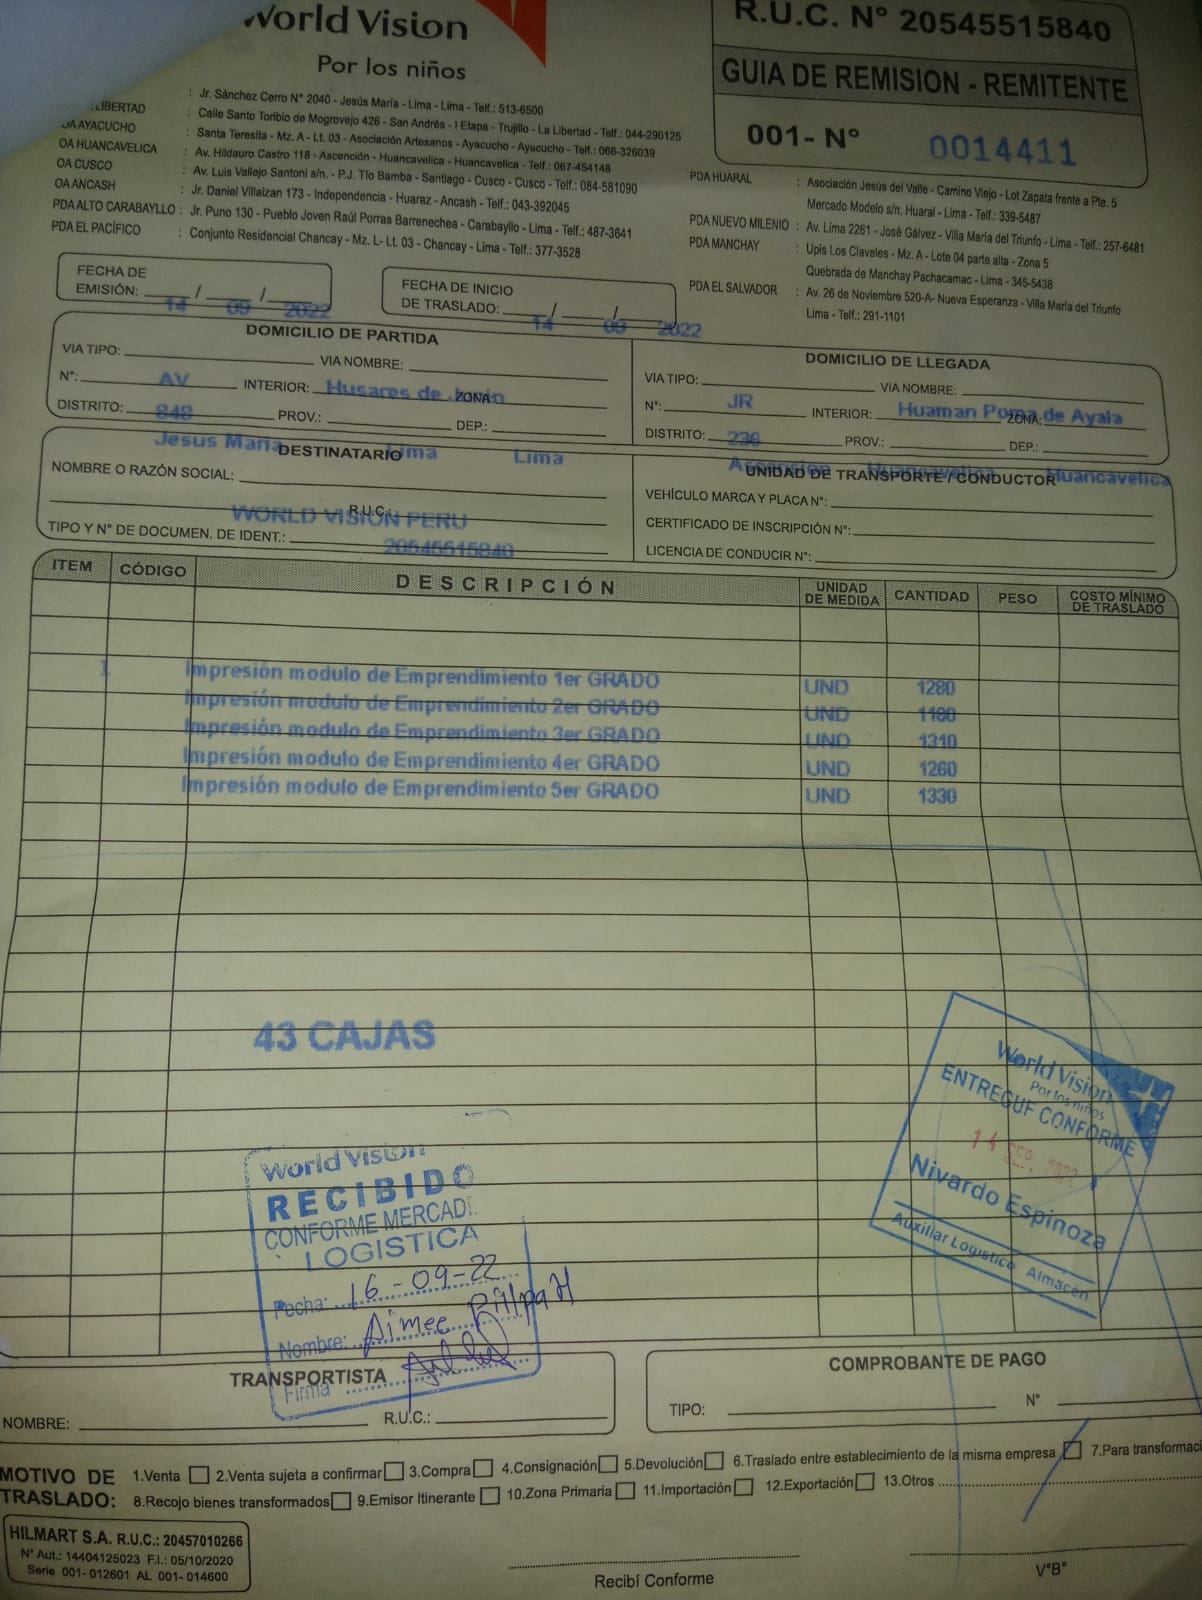 World Vision
Por los niños
R.U.C. N° 20545515840
GUIA DE REMISION - REMITENTE
001- N° 0014411
: Jr. Sánchez Cerro N° 2040 - Jesús María - Lima - Lima - Telf.: 513-6500
LIBERTAD : Calle Santo Toribio de Mogrovejo 426 - San Andrés - I Etapa - Trujillo - La Libertad - Telf.: 044-290125
OA AYACUCHO : Santa Teresita - Mz. A - Lt. 03 - Asociación Artesanos - Ayacucho - Ayacucho - Telf.: 066-326039
OA HUANCAVELICA : Av. Hildauro Castro 118 - Ascención - Huancavelica - Huancavelica - Telf.: 067-454148
OA CUSCO : Av. Luis Vallejo Santoni s/n. - P.J. Tío Bamba - Santiago - Cusco - Cusco - Telf.: 084-581090
OA ANCASH : Jr. Daniel Villaizan 173 - Independencia - Huaraz - Ancash - Telf.: 043-392045
PDA ALTO CARABAYLLO : Jr. Puno 130 - Pueblo Joven Raúl Porras Barrenechea - Carabayllo - Lima - Telf.: 487-3641
PDA EL PACÍFICO : Conjunto Residencial Chancay - Mz. L- Lt. 03 - Chancay - Lima - Telf.: 377-3528
PDA HUARAL : Asociación Jesús del Valle - Camino Viejo - Lot Zapata frente a Pte. 5
Mercado Modelo s/n. Huaral - Lima - Telf.: 339-5487
PDA NUEVO MILENIO : Av. Lima 2261 - José Gálvez - Villa María del Triunfo - Lima - Telf.: 257-6481
PDA MANCHAY : Upis Los Claveles - Mz. A - Lote 04 parte alta - Zona 5
Quebrada de Manchay Pachacamac - Lima - 345-5438
PDA EL SALVADOR : Av. 26 de Noviembre 520-A- Nueva Esperanza - Villa María del Triunfo
Lima - Telf.: 291-1101
FECHA DE
EMISIÓN: / /
14 09 2022
FECHA DE INICIO
DE TRASLADO: / /
14 09 2022
DOMICILIO DE PARTIDA
VIA TIPO: VIA NOMBRE:
N°: AV INTERIOR: Husares de Junín ZONA:
DISTRITO: 848 PROV.: DEP.:
Jesus Maria Lima Lima
DOMICILIO DE LLEGADA
VIA TIPO: VIA NOMBRE:
N°: JR INTERIOR: Huaman Poma de Ayala ZONA:
DISTRITO: 236 PROV.: DEP.:
Ascension Huancavelica Huancavelica
DESTINATARIO
NOMBRE O RAZÓN SOCIAL:
R.U.C.:
WORLD VISION PERU
TIPO Y N° DE DOCUMEN. DE IDENT.:
20545515840
UNIDAD DE TRANSPORTE / CONDUCTOR
VEHÍCULO MARCA Y PLACA N°:
CERTIFICADO DE INSCRIPCIÓN N°:
LICENCIA DE CONDUCIR N°:
ITEM CÓDIGO DESCRIPCIÓN UNIDAD DE MEDIDA CANTIDAD PESO COSTO MÍNIMO DE TRASLADO
1 Impresión modulo de Emprendimiento 1er GRADO UND 1280
Impresión modulo de Emprendimiento 2er GRADO UND 1180
Impresión modulo de Emprendimiento 3er GRADO UND 1310
Impresión modulo de Emprendimiento 4er GRADO UND 1260
Impresión modulo de Emprendimiento 5er GRADO UND 1330
43 CAJAS
World Vision
Por los niños
ENTREGUE CONFORME
14 SEP. 2022
Nivardo Espinoza
Auxiliar Logístico Almacén
World Vision
RECIBIDO
CONFORME MERCAD.
LOGISTICA
Fecha: 16-09-22
Nombre: Aimee
Firma
TRANSPORTISTA
NOMBRE: R.U.C.:
COMPROBANTE DE PAGO
TIPO: N°
MOTIVO DE TRASLADO:
1.Venta 2.Venta sujeta a confirmar 3.Compra 4.Consignación 5.Devolución 6.Traslado entre establecimiento de la misma empresa 7.Para transformaci
8.Recojo bienes transformados 9.Emisor Itinerante 10.Zona Primaria 11.Importación 12.Exportación 13.Otros
HILMART S.A. R.U.C.: 20457010266
N° Aut.: 14404125023 F.I.: 05/10/2020
Serie 001- 012601 AL 001- 014600
Recibí Conforme
V°B°